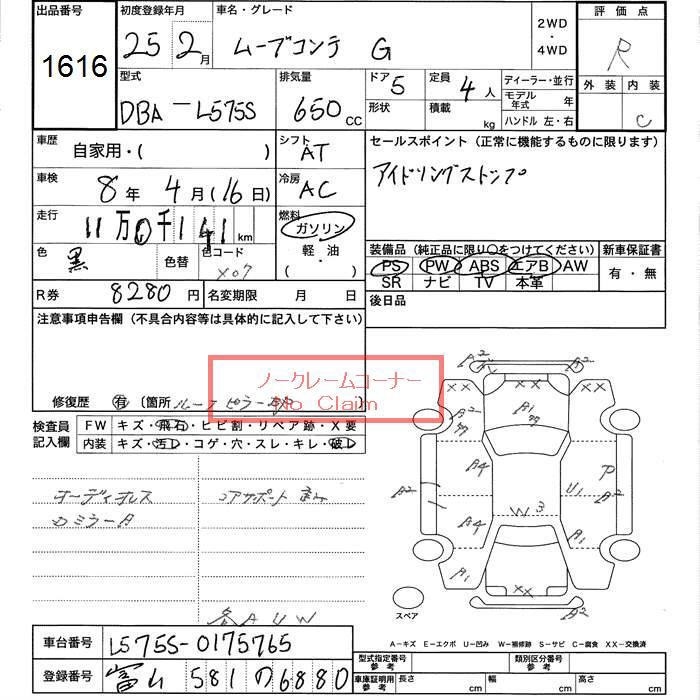 出品番号
1616
初度登録年月
25 2月
車名・グレード
ムーブコンテ G
2WD
・
4WD
評価点
R
外装 内装
C
型式
DBA-L575S
排気量
650 CC
ドア 5
形状
定員 4人
積載 kg
ディーラー・並行
モデル年式 年
ハンドル 左・右
車歴
自家用・( )
シフト
AT
セールスポイント (正常に機能するものに限ります)
アイドリングストップ
車検
8年 4月(16日)
冷房
AC
走行
11万0千141 km
燃料
ガソリン
軽・油
( )
色
黒
色替
色コード
X07
装備品 (純正品に限り○をつけてください)
PS PW ABS エアB AW
SR ナビ TV 本革
新車保証書
有・無
R券
8280円
名変期限 月 日
後日品
注意事項申告欄 (不具合内容等は具体的に記入して下さい)
ノークレームコーナー
No Claim
修復歴 有 (箇所 ルーフ ピラー )
検査員
記入欄
FW キズ・飛石・ヒビ割・リペア跡・X要
内装 キズ・汚レ・コゲ・穴・スレ・キレ・破レ
オーディオレス
コアサポート
各AUW
A2
A2
XX
XX
A2
A1
A4
P
A2
U1
A2
W3
A4
A1
A1
XX
A2
スペア
A-キズ E-エクボ U-凹み W-補修跡 S-サビ C-腐食 XX-交換済
車台番号
L575S-0175765
登録番号
富山 581 の 6880
型式指定番号
参考
類別区分番号
参考
車庫証明用
参考
長さ cm
幅 cm
高さ cm